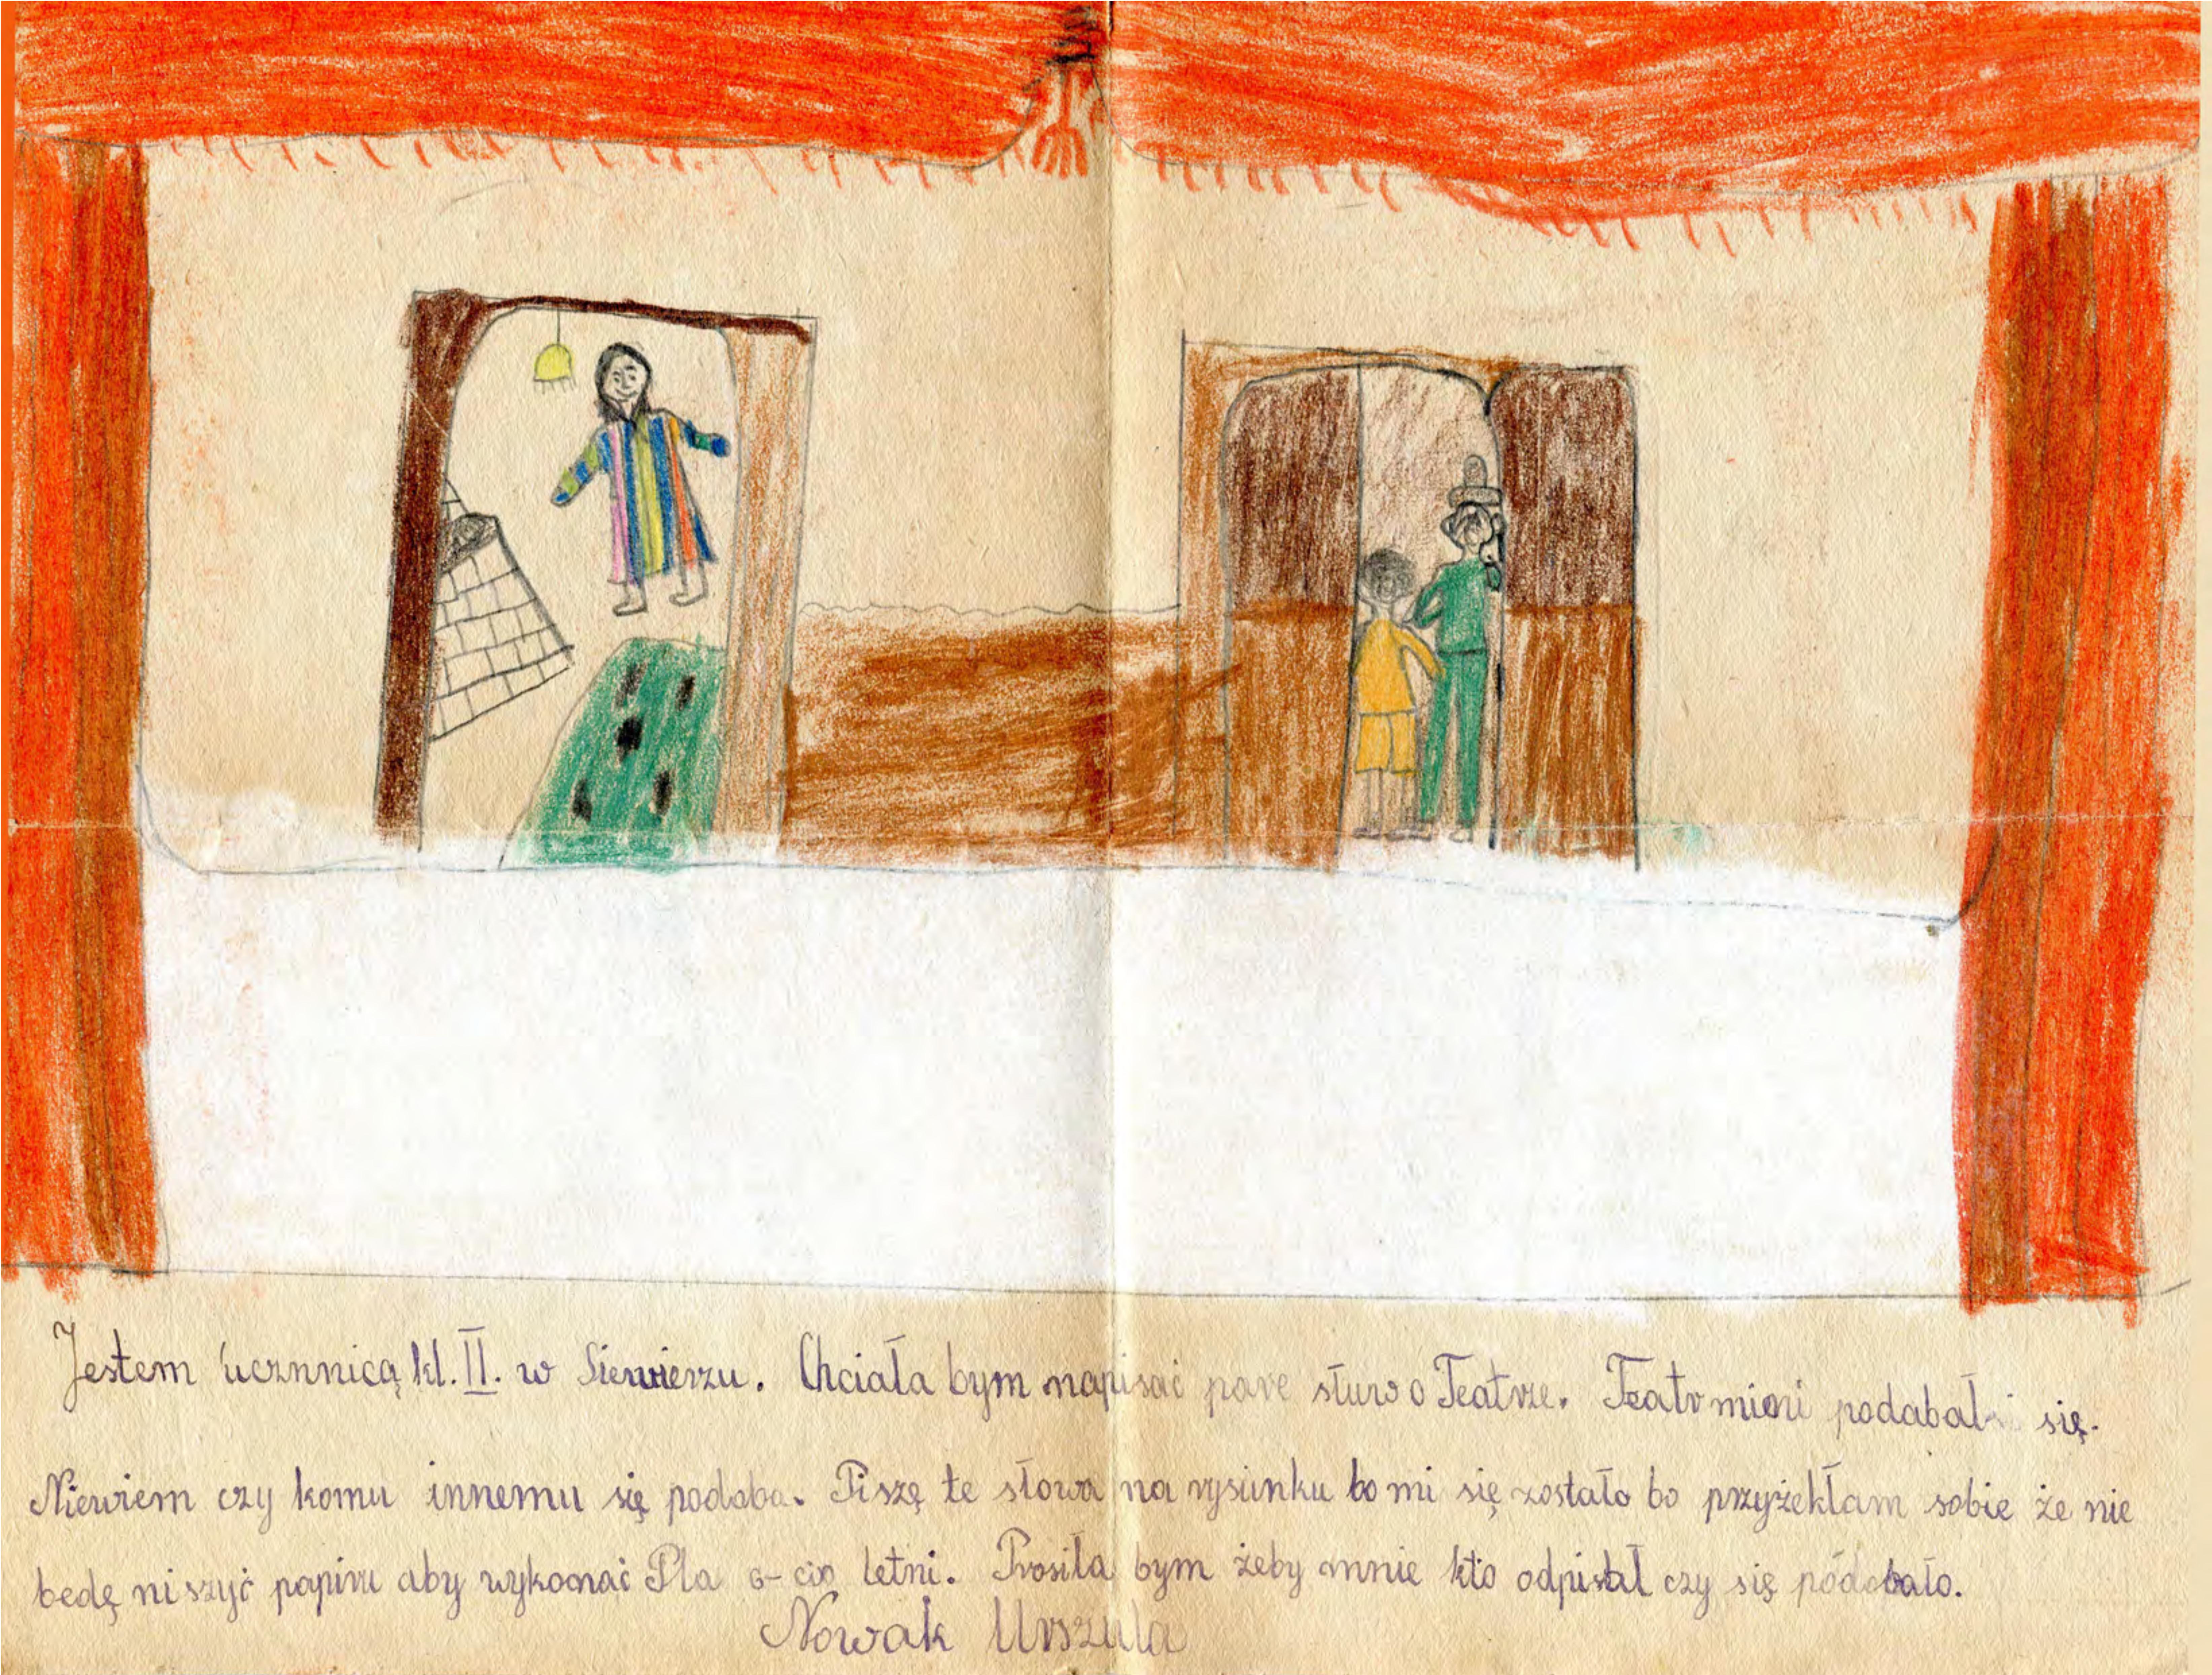 Jestem Ucznnicą kl. II. w Siewierzu. Chciała bym napisać pare słuw o Teatrze. Teatr mioni podabał się.
Niewiem czy komu innemu się podoba. Piszę te słowa na rysunku bo mi się zostało bo przyżekłam sobie że nie
bedę niszyć papiru aby wykonać Pla 6-cio letni. Prosiła bym żeby mnie kto odpisał czy się pódobało.
Nowak Urszula